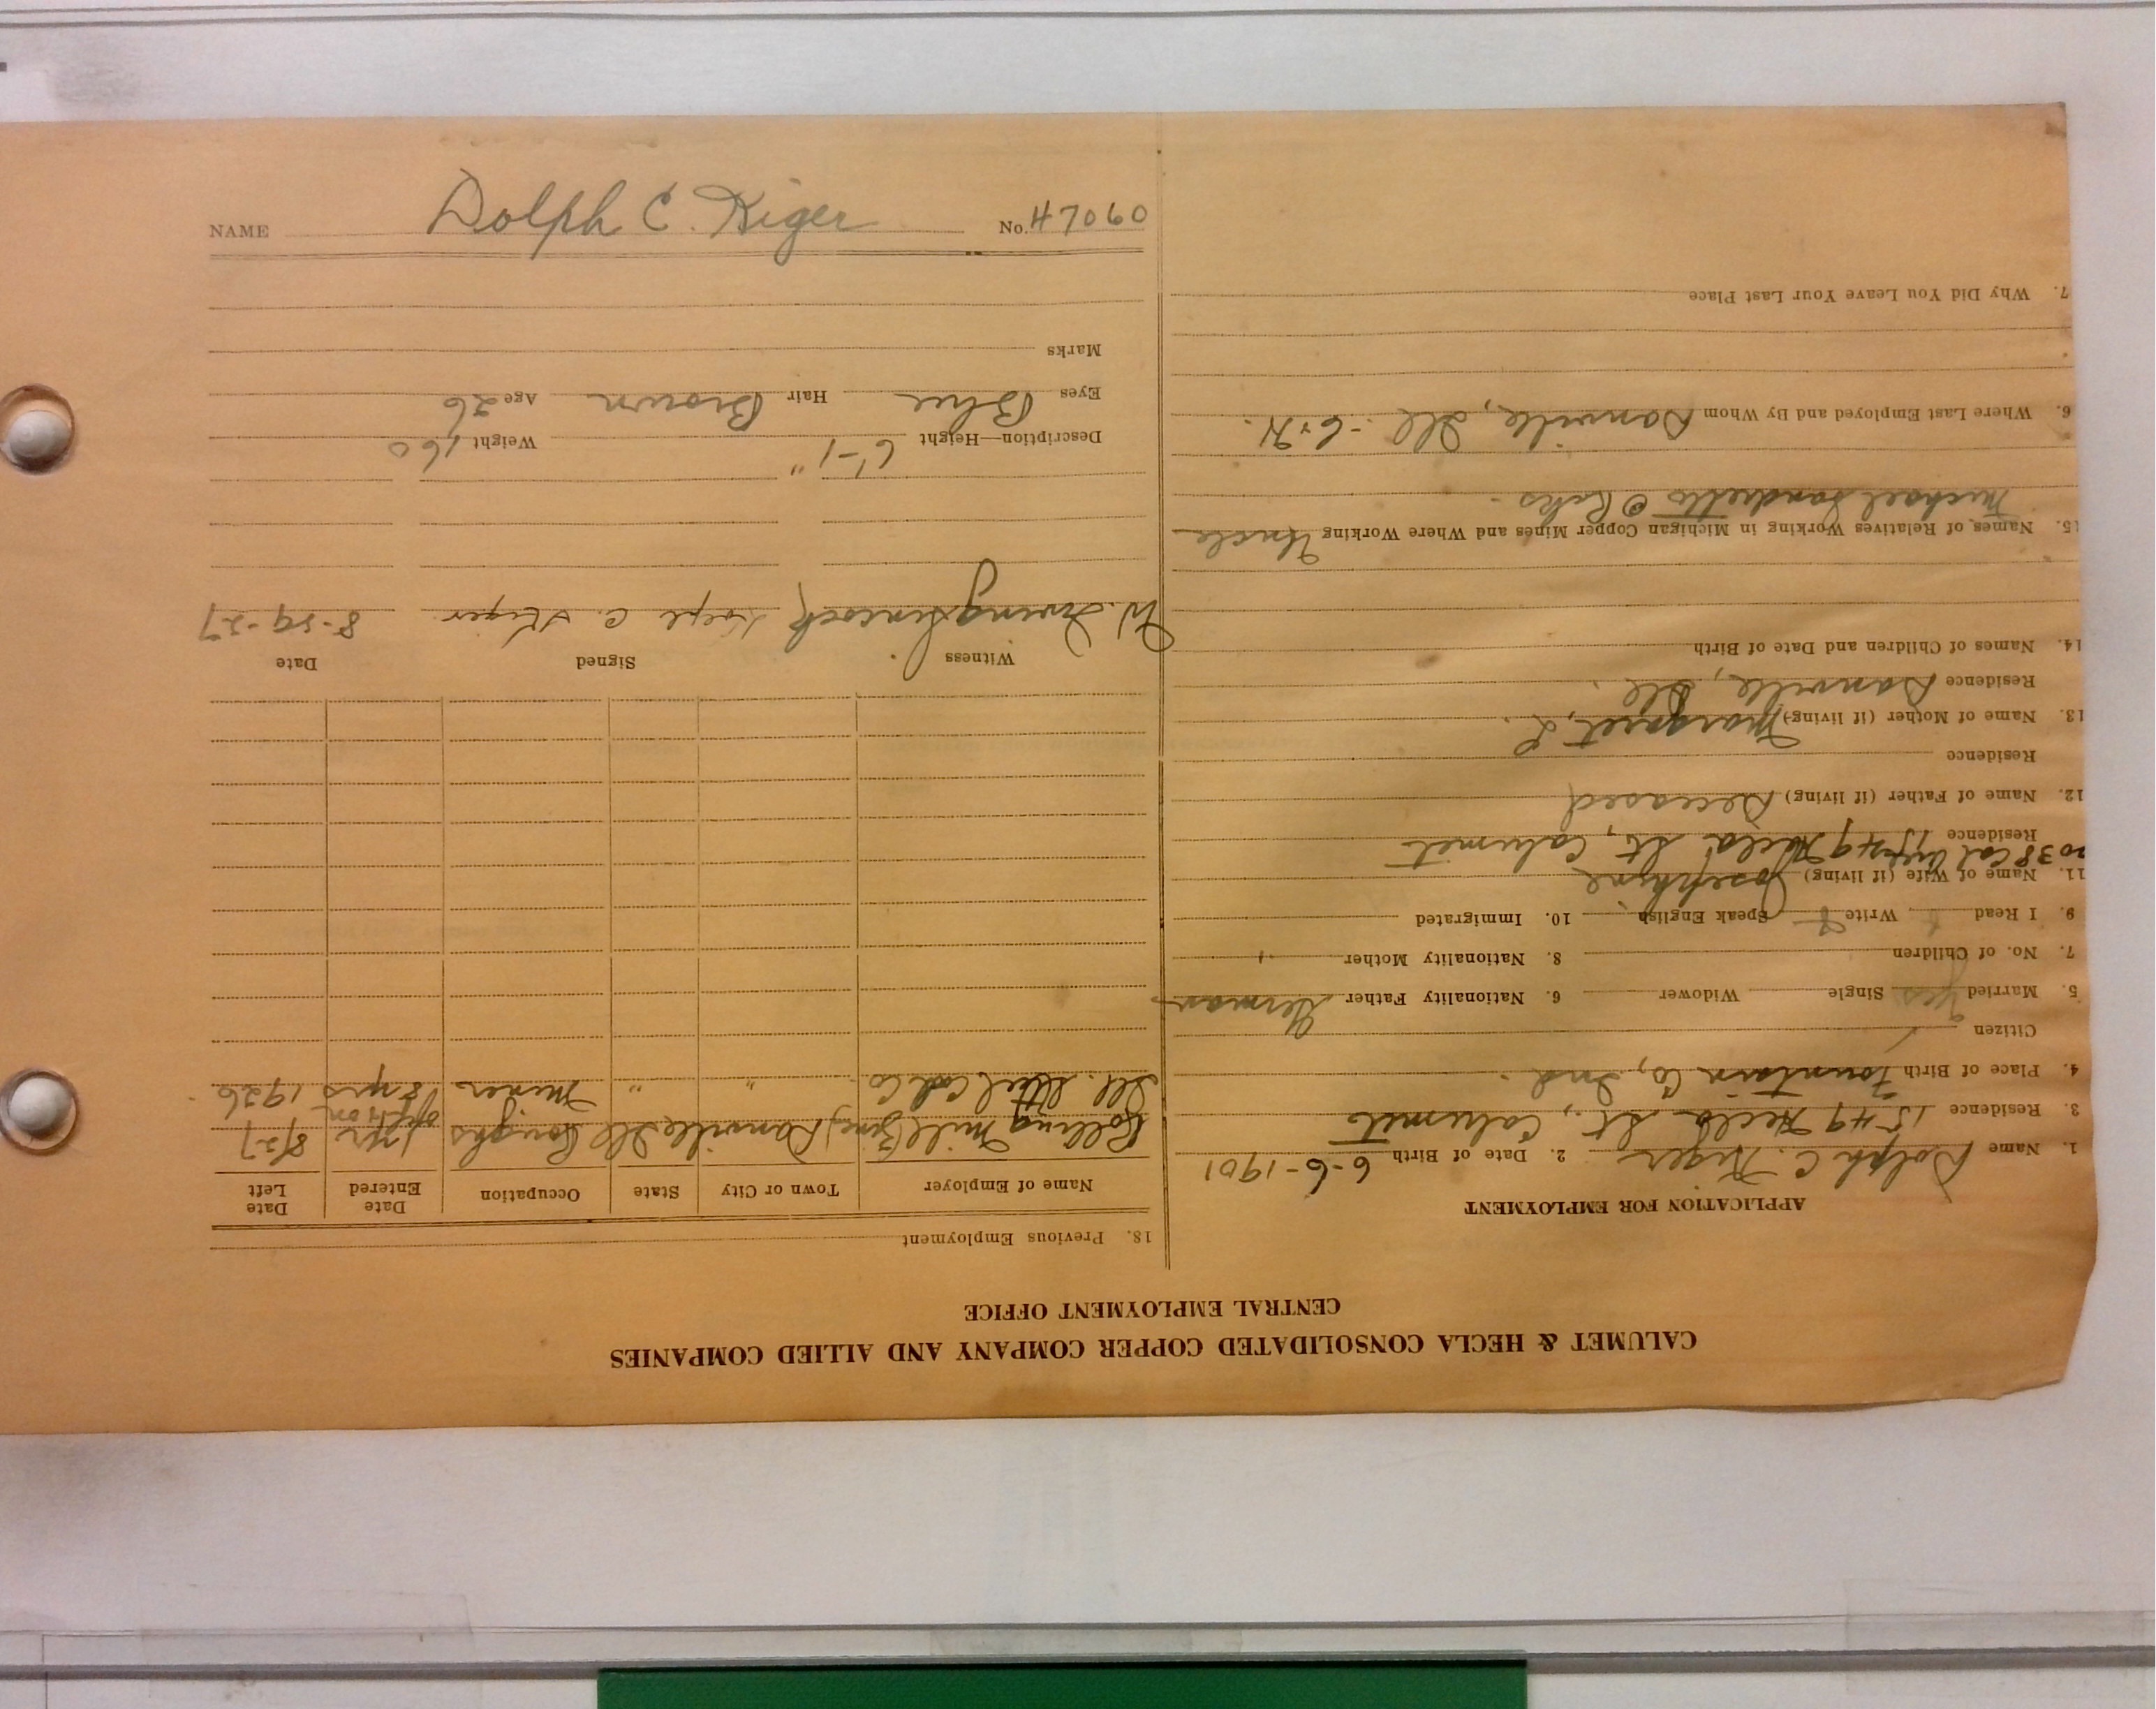 NAME Dolph C. Kiger No. 47060
CALUMET & HECLA CONSOLIDATED COPPER COMPANY AND ALLIED COMPANIES
CENTRAL EMPLOYMENT OFFICE
APPLICATION FOR EMPLOYMENT
1. Name Dolph C. Kiger 2. Date of Birth 6-6-1901
3. Residence 1549 Hecla St., Calumet
4. Place of Birth Fountain Co, Ind.
Citizen
5. Married yes Single Widower 6. Nationality Father German
7. No. of Children 8. Nationality Mother "
9. I Read Write Speak English 10. Immigrated
11. Name of Wife (if living) Josephine
2038 Cal Ave
Residence 1549 Hecla St, Calumet
12. Name of Father (if living) Deceased
Residence
13. Name of Mother (if living) Margaret, L.
Residence Danville, Ill.
14. Names of Children and Date of Birth
15. Names of Relatives Working in Michigan Copper Mines and Where Working Uncle
Michael Sandretto
6. Where Last Employed and By Whom Danville, Ill.
7. Why Did You Leave Your Last Place
18. Previous Employment
Name of Employer Town or City State Occupation Date Entered Date Left
Rolling Mill (Zinc) Danville Ill Roughs 1 yr 8/27
off & on
Ill. Steel Coal Co " " Miner 8 yrs 1926
Witness Signed Date
W. Irving C. Kiger 8-29-27
Description—Height 6'-1" Weight 160
Eyes Blue Hair Brown Age 26
Marks